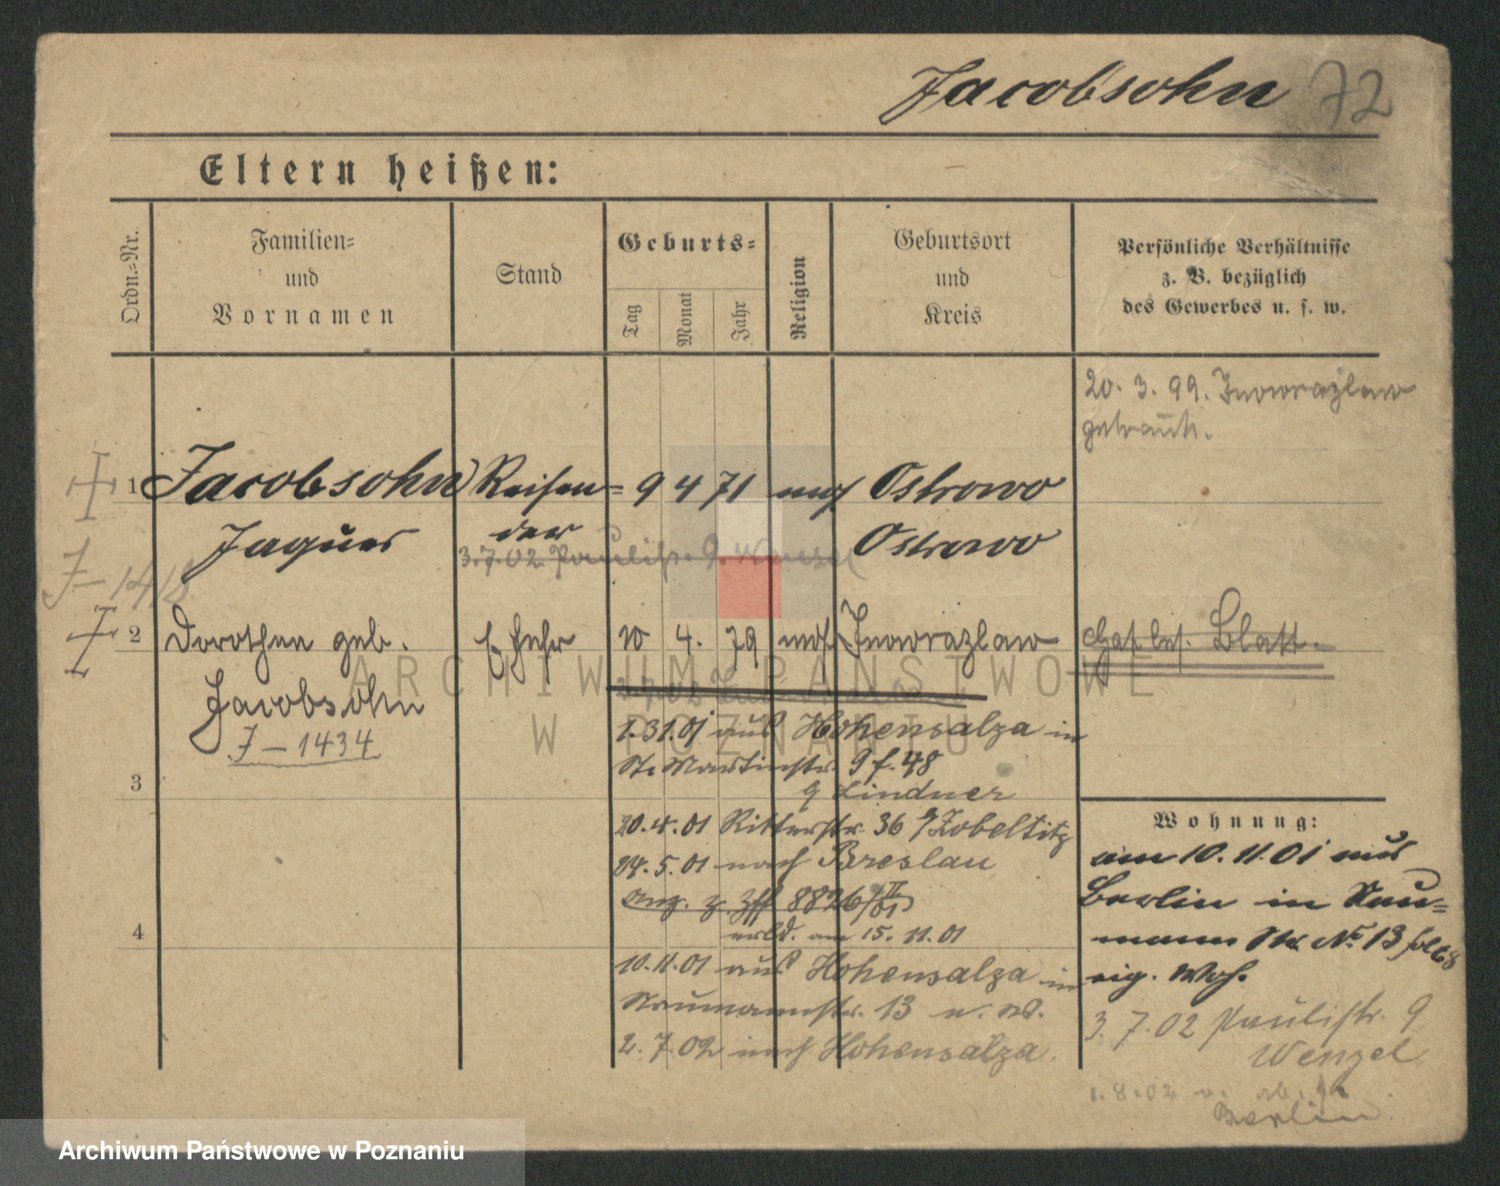 Jacobsohn 72
Eltern heißen:
Ordn.-Nr.
Familien-
und
Vornamen
Stand
Geburts-
Tag
Monat
Jahr
Religion
Geburtsort
und
Kreis
Persönliche Verhältnisse
z. B. bezüglich
des Gewerbes u. s. w.
20. 3. 99. Inowrazlaw
getraut.
1 Jacobsohn Reisen- 9 4 71 mos Ostrowo
Jaques der Ostrowo
3.7.02 Paulistr. 9. Wenzel
J-1418
2 Dorothea geb. 10 4. 79 mos. Inowrazlaw Blatt.
Jacobsohn
J-1434
1.31.01 aus Hohensalza in
St. Martinstr. 48
3 Lindner
20.4.01 Ritterstr. 36 Zobeltitz
24.5.01 nach Breslau
8826/01
4 erld. am 15.11.01
10.11.01 aus Hohensalza in
Naumannstr. 13
2.7.02 nach Hohensalza.
Wohnung:
am 10.11.01 aus
Berlin in Nau-
mann Str. No. 13
eig. Woh.
3.7.02 Paulistr. 9
Wenzel
1.8.02
Berlin.
ARCHIWUM PAŃSTWOWE
W POZNANIU
Archiwum Państwowe w Poznaniu